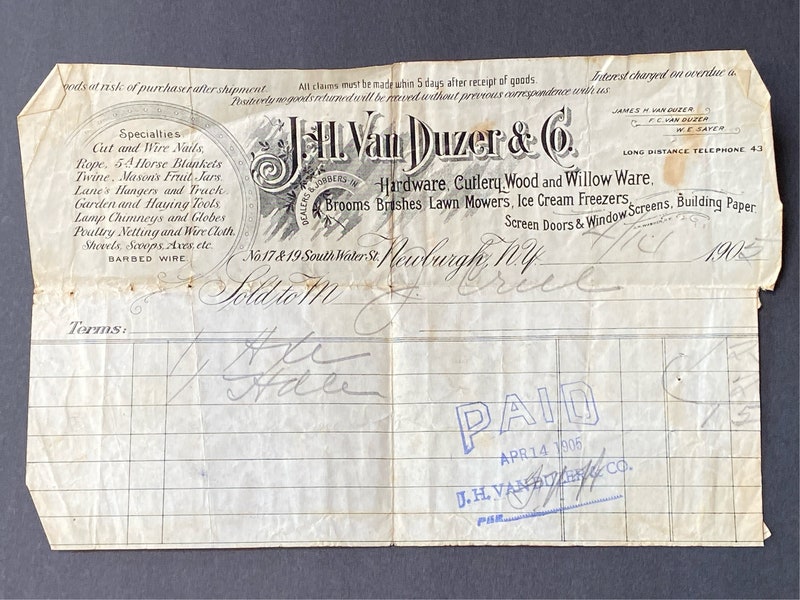 oods at risk of purchaser after shipment
All claims must be made whin 5 days after receipt of goods.
Interest charged on overdue a
Positively no goods returned will be received without previous correspondence with us
JAMES H. VAN DUZER.
F. C. VAN DUZER.
W. E. SAYER
LONG DISTANCE TELEPHONE 43
Specialties
Cut and Wire Nails,
Rope, 5A Horse Blankets
Twine, Mason's Fruit Jars.
Lane's Hangers and Track.
Garden and Haying Tools,
Lamp Chimneys and Globes
Poultry Netting and Wire Cloth.
Shovels, Scoops, Axes, etc.
BARBED WIRE.
J.H. Van Duzer & Co.
DEALERS & JOBBERS IN
Hardware, Cutlery, Wood and Willow Ware,
Brooms Brushes Lawn Mowers, Ice Cream Freezers,
Screen Doors & Window Screens, Building Paper
No. 17 & 19 South Water St. Newburgh, N.Y. 1905
Sold to M J.
Terms:
PAID
APR 14 1905
J. H. VAN DUZER & CO.
PER